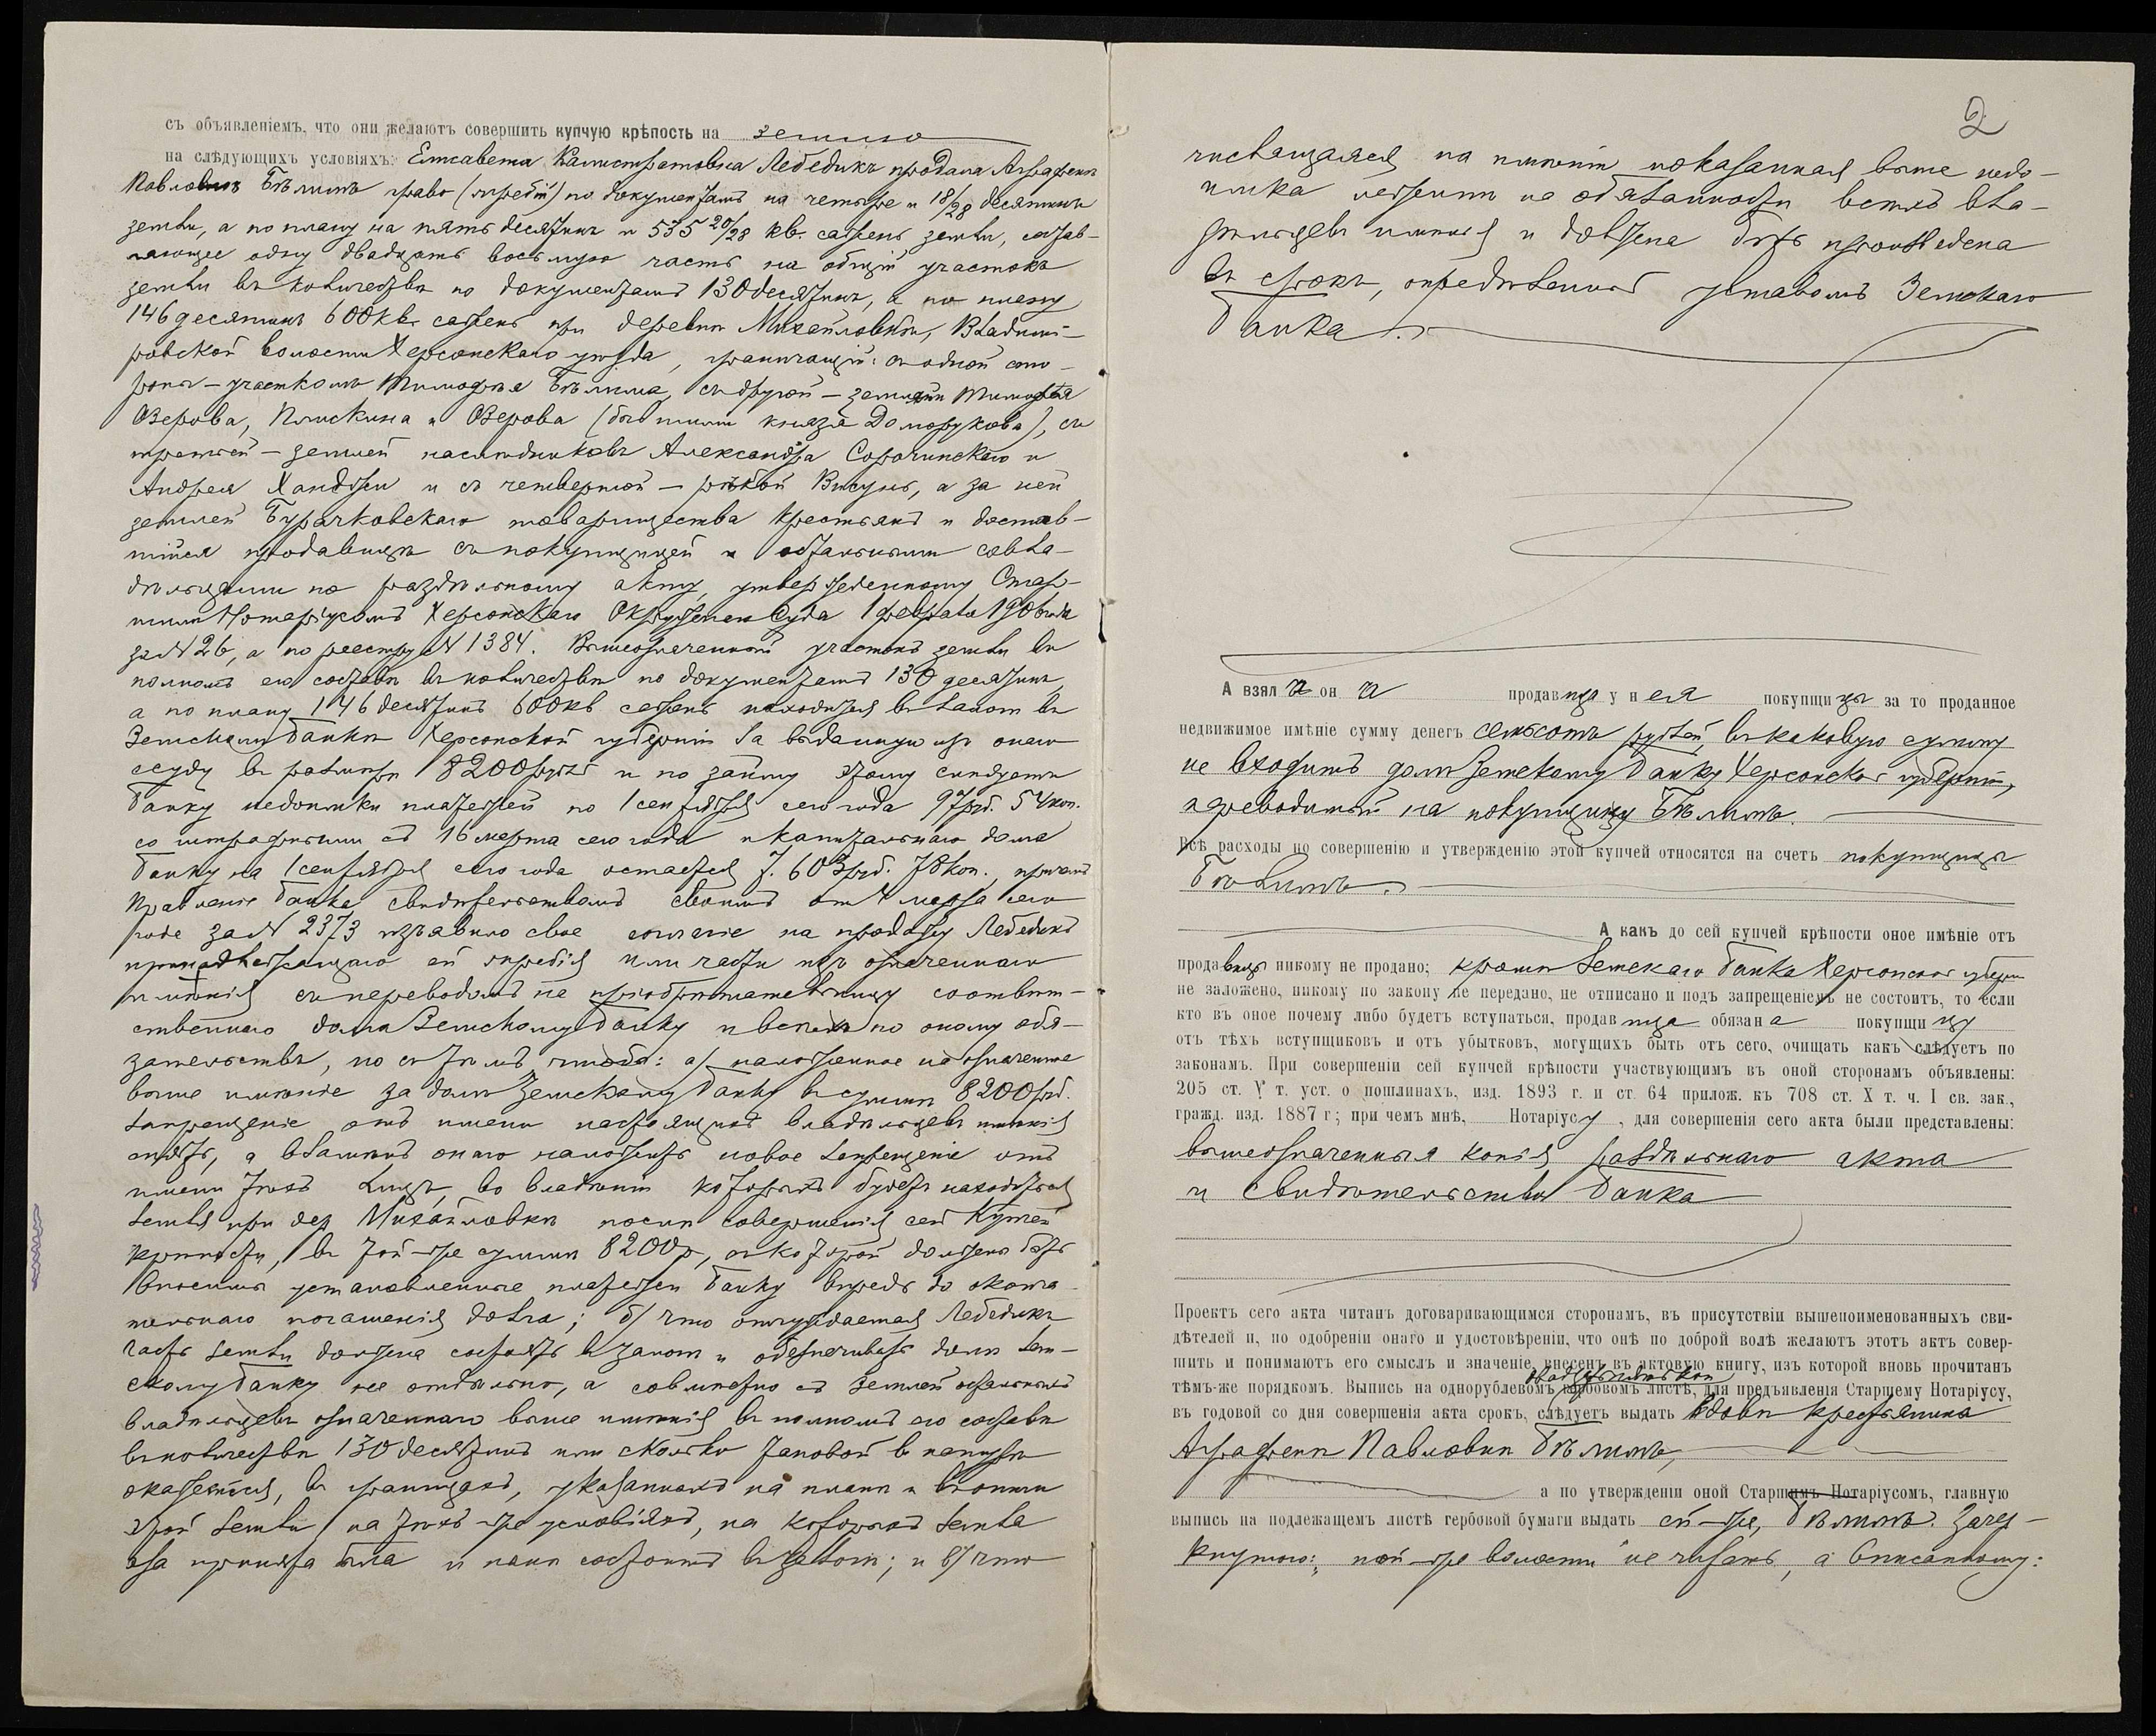 съ объявленіемъ, что они желаютъ совершить купчую крѣпость на землю
на слѣдующихъ условіяхъ: Елисавета Калистратовна Лебедикъ продала Аграфенѣ
Павловнѣ Бѣлимъ право (жребій) по документамъ на четыре и 18/28 десятины
земли, а по плану на пять десятинъ и 535 20/28 кв. сажень земли, состав-
ляющее одну двадцать восьмую часть на общій участокъ
земли въ количествѣ по документамъ 130 десятинъ, а по плану
146 десятинъ 600 кв. сажень при деревнѣ Михайловкѣ, Владимі-
ровской волости Херсонскаго уѣзда, граничащій: съ одной сто-
роны – участкомъ Тимофея Бѣлима, съ другой – землями Тимофея
Озерова, Пляскина и Озерова (бывшими князя Долгорукова), съ
третьей – землей наслѣдниковъ Александра Сорочинскаго и
Андрея и съ четвертой – рѣкой Висунь, а за ней
землей Бурачковскаго товарищества крестьянъ и достав-
шійся продавицѣ съ покупщицей и остальными совла-
дѣльцами по раздѣльному акту, утвержденному Стар-
шимъ Нотаріусомъ Херсонскаго Окружнаго Суда 1 февраля года
за № 26, а по реестру № 1384. Вышеозначенный участокъ земли въ
полномъ его составѣ въ количествѣ по документамъ 130 десятинъ,
а по плану 146 десятинъ 600 кв сажень находится въ залогѣ въ
Земскомъ Банкѣ Херсонской губерніи за выданную изъ онаго
ссуду въ размѣрѣ 8200 рублей и по займу этому слѣдуетъ
Банку недоимки платежей по 1 сентября сего года 97 руб. 54 коп.
со штрафными съ 16 марта сего года и капитальнаго долга
Банку на 1 сентября сего года остается 7.603 руб. 78 коп., причемъ
Правленіе Банка свидѣтельствомъ своимъ отъ марта сего
года за № 2373 изъявило свое согласіе на продажу Лебедикъ
принадлежащаго ей жребія или части изъ означеннаго
имѣнія съ переводомъ на пріобрѣтательницу соотвѣт-
ственнаго долга Земскому Банку и всѣхъ по оному обя-
зательствъ, но съ тѣмъ, чтобы: а) наложенное на означенное
выше имѣніе за долгъ Земскому Банку въ суммѣ 8200 руб.
запрещеніе отъ имени настоящихъ владѣльцевъ имѣнія
снять, а взамѣнъ онаго наложить новое запрещеніе отъ
имени тѣхъ лицъ, во владѣніи которыхъ будетъ находиться
земля при дер. Михайловкѣ послѣ совершенія сей купчей
крѣпости, въ той-же суммѣ 8200 р, съ которой должны быть
вносимы установленные платежи Банку впредь до оконча-
тельнаго погашенія долга; б) что отчуждаемая Лебедикъ
часть земли должна состоять въ залогѣ и обезпечивать долгъ Зем-
скому Банку не отдѣльно, а совмѣстно съ землей остальныхъ
владѣльцевъ означеннаго выше имѣнія въ полномъ его составѣ
въ количествѣ 130 десятинъ или сколько таковой въ натурѣ
окажется, въ границахъ, указанныхъ на планѣ и въ описи
этой земли на тѣхъ-же условіяхъ, на которыхъ земля
эта принята была и нынѣ состоитъ въ залогѣ; и в) что
2
числящаяся на имѣніи показанная выше недо-
имка лежитъ на обязанности всѣхъ вла-
дѣльцевъ имѣнія и должна быть произведена
въ срокъ, опредѣленный уставомъ Земскаго
Банка.
А взяла он а продавица у нея покупщицы за то проданное
недвижимое имѣніе сумму денегъ семьсотъ рублей, въ каковую сумму
не входитъ долгъ Земскому Банку Херсонской губерніи,
переводимый на покупщицу Бѣлимъ.
Всѣ расходы по совершенію и утвержденію этой купчей относятся на счетъ покупщицы
Бѣлимъ.
А какъ до сей купчей крѣпости оное имѣніе отъ
продавицы никому не продано; кромѣ Земскаго Банка Херсонской губерніи
не заложено, никому по закону не передано, не отписано и подъ запрещеніемъ не состоитъ, то если
кто въ оное почему либо будетъ вступаться, продавица обязана покупщицу
отъ тѣхъ вступщиковъ и отъ убытковъ, могущихъ быть отъ сего, очищать какъ слѣдуетъ по
законамъ. При совершеніи сей купчей крѣпости участвующимъ въ оной сторонамъ объявлены:
205 ст. V т. уст. о пошлинахъ, изд. 1893 г. и ст. 64 прилож. къ 708 ст. X т. ч. I св. зак.,
гражд. изд. 1887 г; при чемъ мнѣ, Нотаріусу, для совершенія сего акта были представлены:
вышеозначенныя копія раздѣльнаго акта
и свидѣтельство Банка
Проектъ сего акта читанъ договаривающимся сторонамъ, въ присутствіи вышепоименованныхъ сви-
дѣтелей и, по одобреніи онаго и удостовѣреніи, что онѣ по доброй волѣ желаютъ этотъ актъ совер-
шить и понимаютъ его смыслъ и значеніе, внесенъ въ актовую книгу, изъ которой вновь прочитанъ
тѣмъ-же порядкомъ. Выпись на однорублевомъ гербовомъ листѣ, для предъявленія Старшему Нотаріусу,
въ годовой со дня совершенія акта срокъ, слѣдуетъ выдать вдовѣ крестьянина
Аграфенѣ Павловнѣ Бѣлимъ,
а по утвержденіи оной Старшимъ Нотаріусомъ, главную
выпись на подлежащемъ листѣ гербовой бумаги выдать ей-же, Бѣлимъ. Зачер-
кнутого: „той-же волости" не читать, а вписанному: